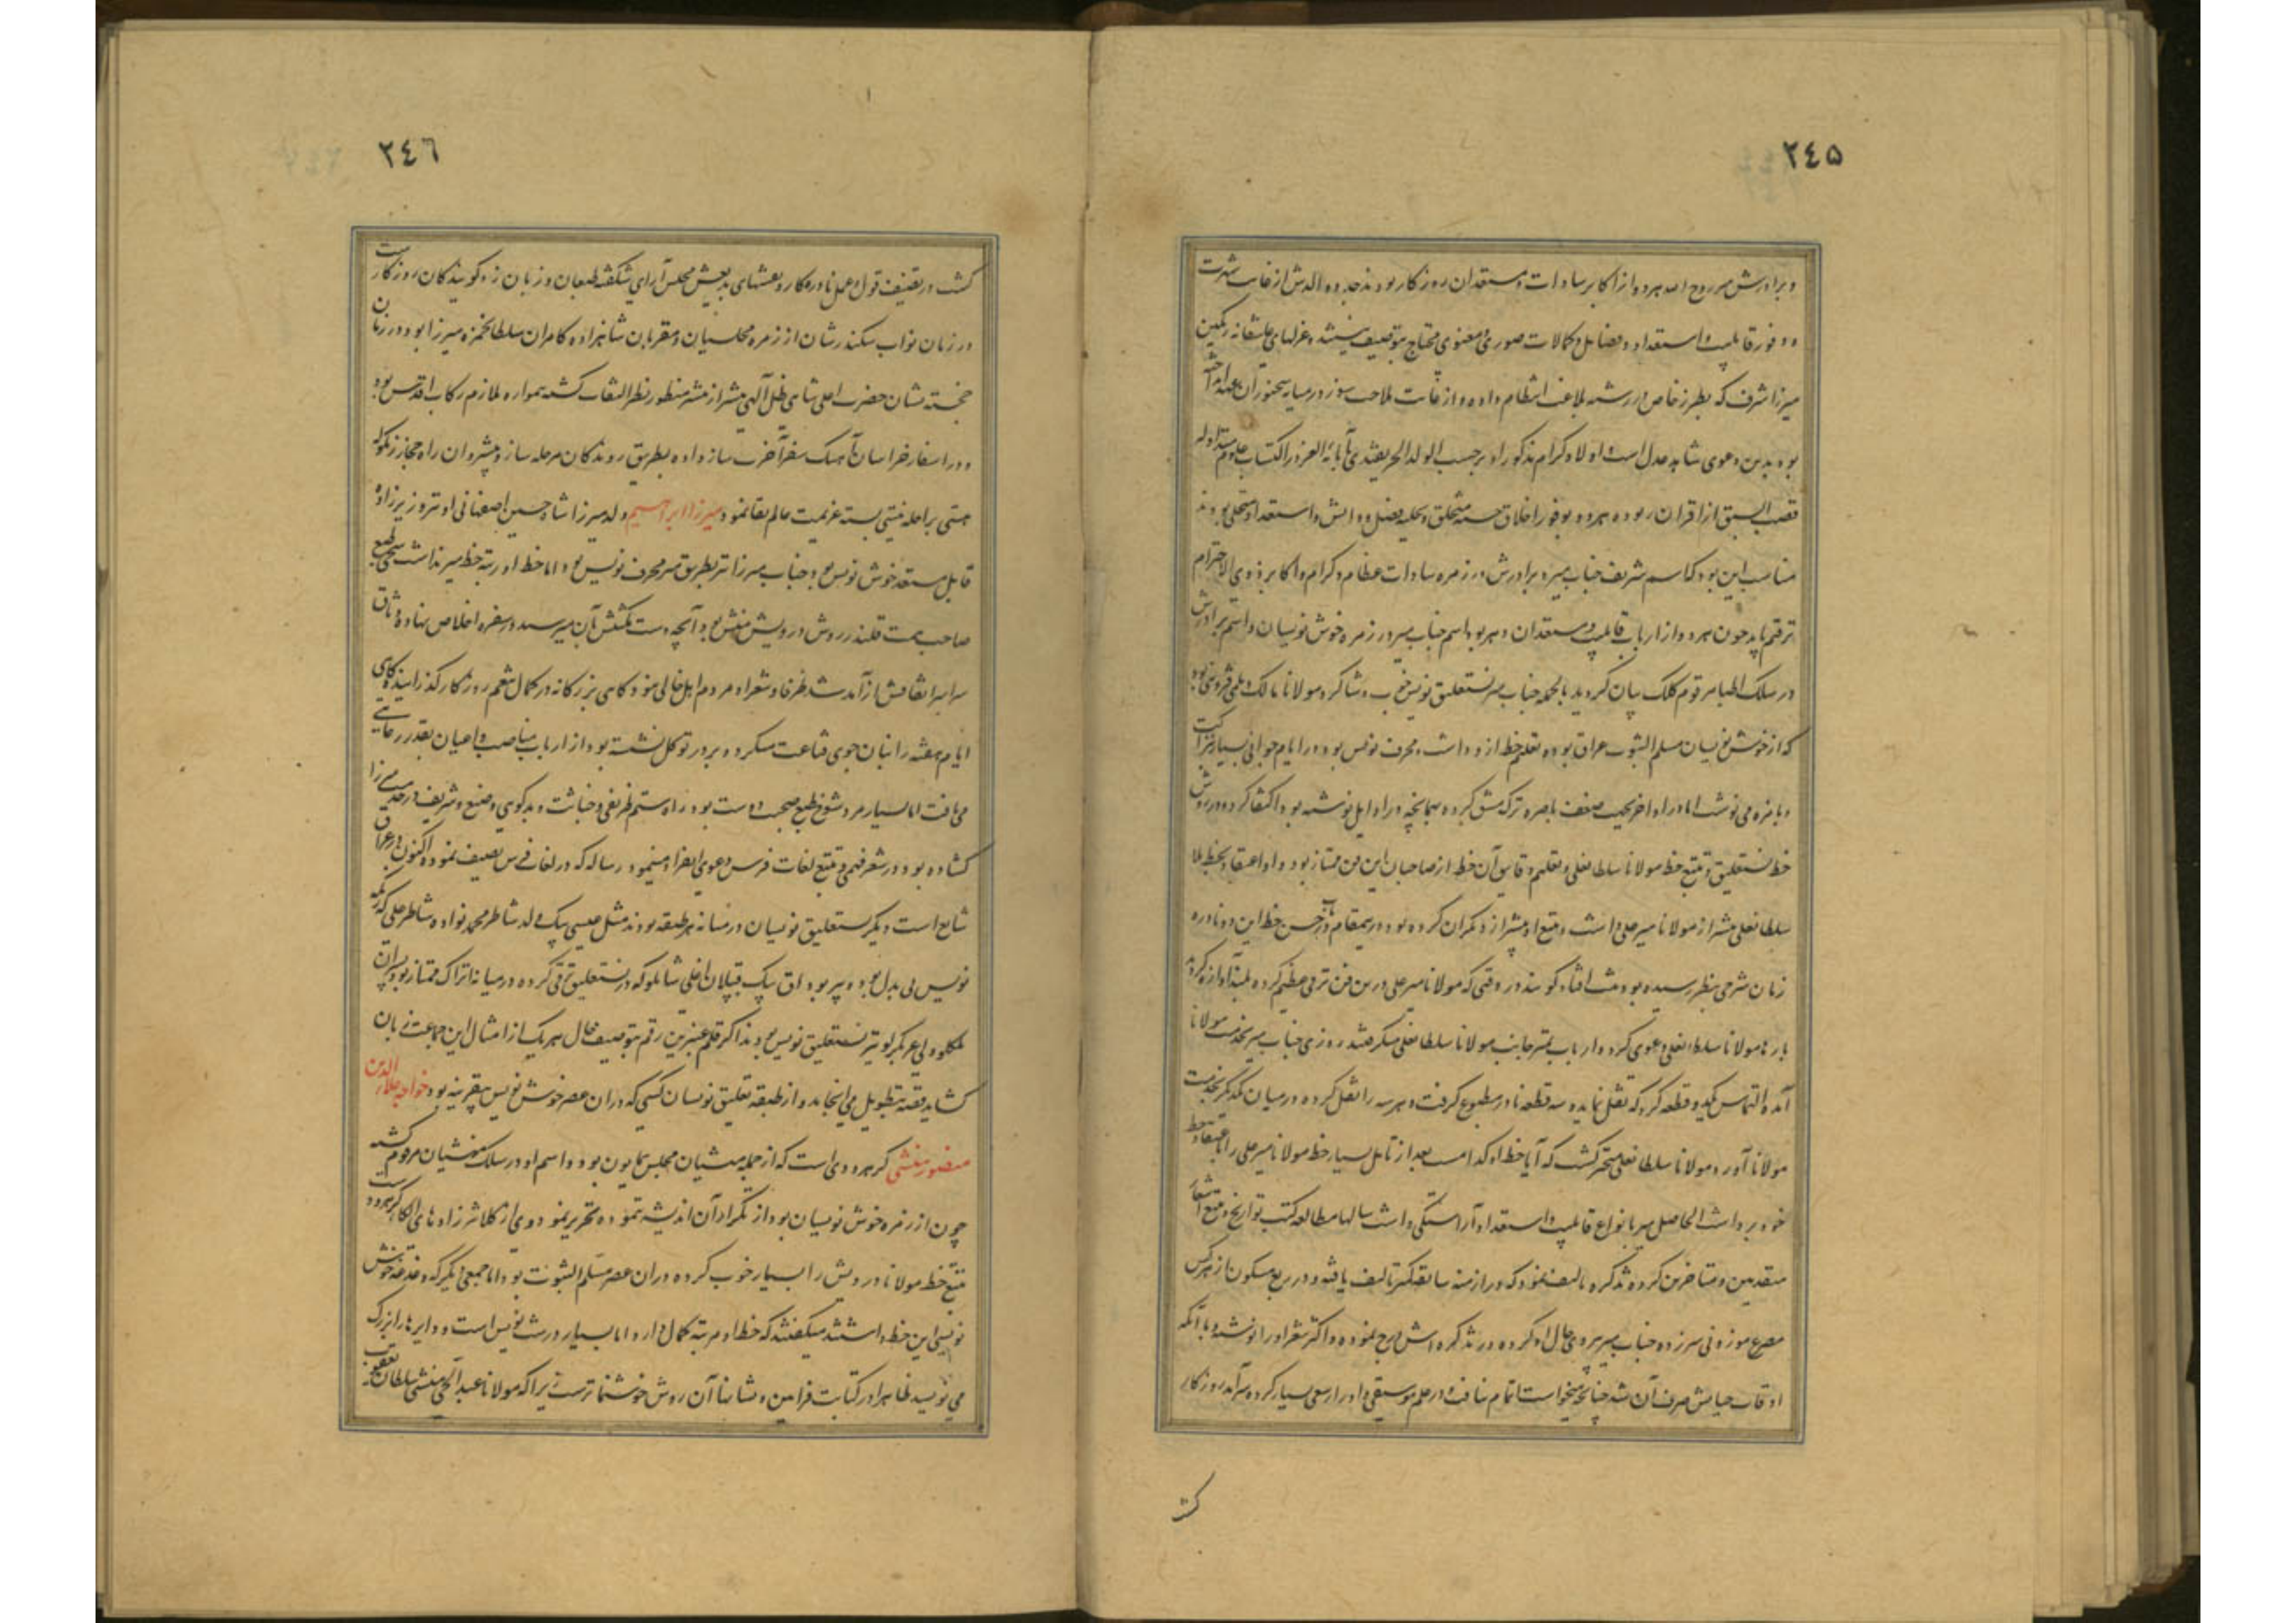 ٢٤٥
و برادرش میر روح الله هر دو از اکابر سادات و مستعدان روزگار بودند جد و والدش از غایت شهرت
و وفور قابلیت و استعداد و فضایل و کمالات صوری و معنوی محتاج بتوصیف نیستند و غزلهای عاشقانه رنگین
میرزا شرف که بطرز خاص در رشته بلاغت انتظام داده و از غایت ملاحت سوز در میان سخنوران عهد
بود بدین دعوی شاهد عدل است اولاد کرام مذکور او برحسب الولد الحر یقتدی بآبائه الغر در اکتساب علوم متداوله
قصب السبق از اقران ربوده هر دو بوفور اخلاق حسنه متخلق و بحلیه فضل و دانش و استعداد متحلی بودند
مناسب این بود که اسم شریف جناب میر و برادرش در زمره سادات عظام و کرام و اکابر ذوی الاحترام
ترقیم یابد چون هر دو از ارباب قابلیت و مستعدان دهر بود اسم جناب میر در زمره خوش نویسان و اسم برادرش
در سلک اطبا مرقوم کلک بیان گردید بالجمله جناب میر نستعلیق نویس خوب و شاگرد مولانا مالک دیلمی قزوینی بود
که از خوش نویسان مسلم الثبوت عراق بوده تعلیم خط ازو داشت و محرف نویس بود در ایام جوانی بسیار بنزاکت
و بامزه می نوشت اما در اواخر بجهت ضعف باصره ترک مشق کرده بهمانچه در اوایل نوشته بود اکتفا کرد و در روش
خط نستعلیق و تتبع خط مولانا سلطانعلی و تعلیم دقایق آن خط از صاحبان این فن ممتاز بود و او اعتقاد بخط ملا
سلطانعلی بیشتر از مولانا میرعلی داشت و تتبع او بیشتر از دیگران کرده بود درین مقام در باب حسن خط این دو نادره
زمان شرحی بنظر رسیده بود ثبت افتاد گویند در وقتی که مولانا میرعلی درین فن ترقی عظیم کرده بلند آوازه گردید
بارها مولانا سلطانعلی دعوی کرد و ارباب تمیز جانب مولانا سلطانعلی میگرفتند روزی جناب میر بخدمت مولانا
آمده التماس یکدو قطعه کرد که نقل نماید و سه قطعه نادر مطبوع گرفت و هر سه را نقل کرده در میان یکدیگر بخدمت
مولانا آورد و مولانا سلطانعلی متحیر گشت که آیا خط او کدامست بعد از تامل بسیار خط مولانا میرعلی را باعتقاد خط
خود برداشت الحاصل میر بانواع قابلیت و استعداد آراستگی داشت سالها مطالعه کتب تواریخ و تتبع اشعار
متقدمین و متاخرین کرده تذکره تالیف نمود که در ازمنه سابقه کمتر تالیف یافته و در ربع مسکون از هر کس
مصرع موزونی سرزده جناب میر پیروی حال او کرده در تذکره اش درج نموده و اکثر شعر او را نوشته و با آنکه
اوقات حیاتش صرف آن شد چنانچه میخواست اتمام نیافت و در علم موسیقی و ادوار سعی بسیار کرده سرآمد روزگار
گشت
٢٤٦
گشت در تصنیف قول و عمل نادره کار و نقشهای بدیعش مجلس آرای شکفته طبعان و زبان زد گویندگان روزگارست
در زمان نواب سکندرشان از زمره مجلسیان و مقربان شاهزاده کامران سلطان حمزه میرزا بود و در زمان
خجسته نشان حضرت اعلی شاهی ظل الهی بیشتر از پیشتر منظور نظر التفات گشته همواره ملازم رکاب اقدس بود
و در اسفار خراسان آهنگ سفر آخرت ساز داده بطریق روندگان مرحله ساز و پیشروان راه حجاز زنگوله
هستی بر راحله نیستی بسته عزیمت عالم بقا نمود میرزا ابراهیم ولد میرزا شاه حسین اصفهانی او نیز وزیرزاده
قابل مستعد خوش نویس بود جناب میرزا نیز بطریق میر محرف نویس بود اما خط او رتبه خط میر نداشت سخی طبع
صاحب همت قلندر روش درویش منش بود آنچه دست مکنتش بآن میرسید در سفره اخلاص نهاده وثاق
سراسر اتفاقش از آمد شد ظرفا و شعرا و مردم اهل خالی نبود گاهی بزرگانه در کمال تنعم روزگار گذرانیده گاهی
ایام هفته را بنان جوی قناعت میکرد و بر در توکل نشسته بود از ارباب مناصب و اعیان بقدر رعایتی
می یافت اما بسیار مرد شوخ طبع صحبت دوست بود راه ستم ظریفی و خباثت و بدگویی وضیع و شریف در خدمت میرزا
گشاده بود و در شعر فهمی و تتبع لغات فرس دعوی انفراد مینمود رساله که در لغات فرس تصنیف نموده اکنون در عراق
شایع است دیگر نستعلیق نویسان در میانه هر طبقه بودند مثل عیسی بیک ولد شاطر محمد نواده شاطر علی که
نویس بی بدل بوده پیر بوداق بیک قپلان اغلی شاملو که در نستعلیق ترقی کرده در میانه اتراک ممتاز بود و پسران
یکلو ولی عربگیرلو نیز نستعلیق نویس بودند اگر قلم عنبرین رقم بتوصیف حال هر یک از امثال این جماعت زبان
گشاید قصه بتطویل می انجامد و از طبقه تعلیق نویسان کسی که در آن عصر خوش نویس بی قرینه بود خواجه علاء الدین
منصور منشی کرهرودی است که از جمله منشیان مجلس همایون بود و اسم او در سلک منشیان مرقوم گشته
چون از زمره خوش نویسان بود از تکرار آن اندیشه ننموده تحریر نمود وی از کلانترزاده های الکای کرهرودست
تتبع خط مولانا درویش را بسیار خوب کرده در آن عصر مسلم الثبوت بود اما جمعی دیگر که دغدغه خوش
نویسی این خط داشتند میگفتند که خط او مرتبه کمال دارد اما بسیار درشت نویس است و دایرها را بزرگ
می نویسد ظاهرا در کتابت فرامین و نشانها آن روش خوشنماترست زیرا که مولانا عبدالحی منشی سلطان یعقوب